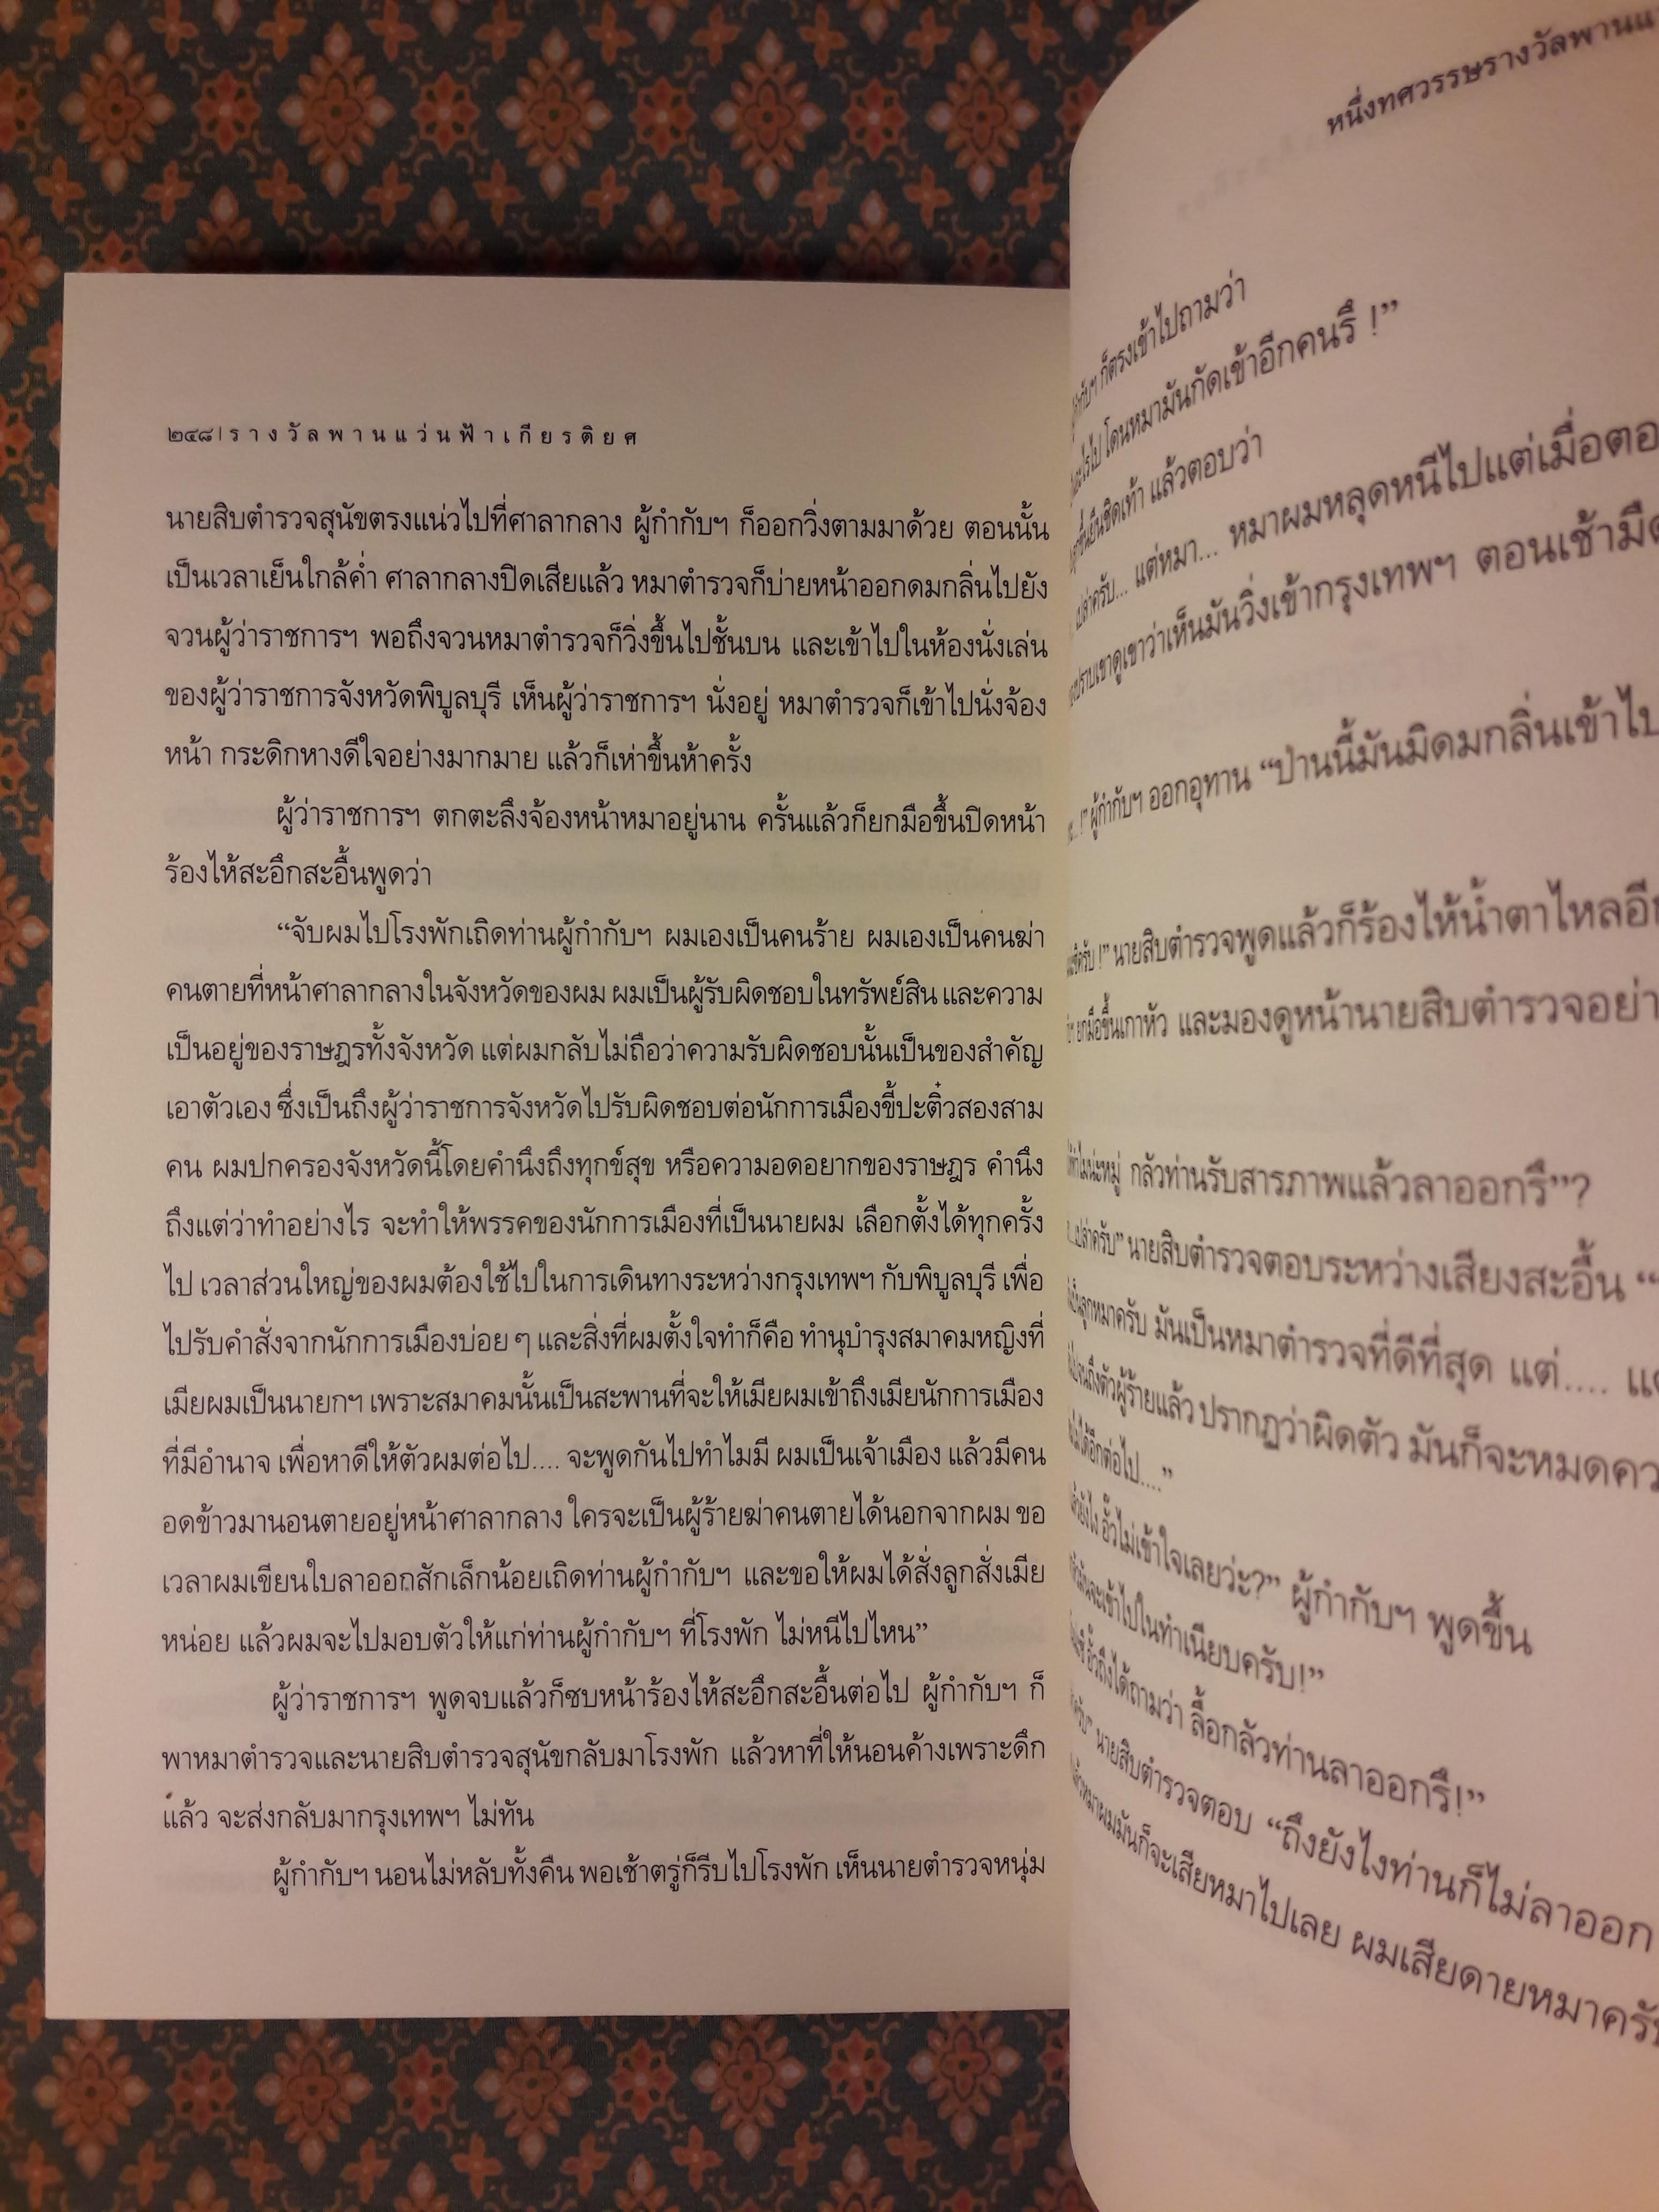 ๒๔๘ | รางวัลพานแว่นฟ้าเกียรติยศ
นายสิบตำรวจสุนัขตรงแน่วไปที่ศาลากลาง ผู้กำกับฯ ก็ออกวิ่งตามมาด้วย ตอนนั้น
เป็นเวลาเย็นใกล้ค่ำ ศาลากลางปิดเสียแล้ว หมาตำรวจก็บ่ายหน้าออกดมกลิ่นไปยัง
จวนผู้ว่าราชการฯ พอถึงจวนหมาตำรวจก็วิ่งขึ้นไปชั้นบน และเข้าไปในห้องนั่งเล่น
ของผู้ว่าราชการจังหวัดพิบูลบุรี เห็นผู้ว่าราชการฯ นั่งอยู่ หมาตำรวจก็เข้าไปนั่งจ้อง
หน้า กระดิกหางดีใจอย่างมากมาย แล้วก็เห่าขึ้นห้าครั้ง
ผู้ว่าราชการฯ ตกตะลึงจ้องหน้าหมาอยู่นาน ครั้นแล้วก็ยกมือขึ้นปิดหน้า
ร้องไห้สะอึกสะอื้นพูดว่า
“จับผมไปโรงพักเถิดท่านผู้กำกับฯ ผมเองเป็นคนร้าย ผมเองเป็นคนฆ่า
คนตายที่หน้าศาลากลางในจังหวัดของผม ผมเป็นผู้รับผิดชอบในทรัพย์สิน และความ
เป็นอยู่ของราษฎรทั้งจังหวัด แต่ผมกลับไม่ถือว่าความรับผิดชอบนั้นเป็นของสำคัญ
เอาตัวเอง ซึ่งเป็นถึงผู้ว่าราชการจังหวัดไปรับผิดชอบต่อนักการเมืองขี้ปะติ๋วสองสาม
คน ผมปกครองจังหวัดนี้โดยคำนึงถึงทุกข์สุข หรือความอดอยากของราษฎร คำนึง
ถึงแต่ว่าทำอย่างไร จะทำให้พรรคของนักการเมืองที่เป็นนายผม เลือกตั้งได้ทุกครั้ง
ไป เวลาส่วนใหญ่ของผมต้องใช้ไปในการเดินทางระหว่างกรุงเทพฯ กับพิบูลบุรี เพื่อ
ไปรับคำสั่งจากนักการเมืองบ่อย ๆ และสิ่งที่ผมตั้งใจทำก็คือ ทำนุบำรุงสมาคมหญิงที่
เมียผมเป็นนายกฯ เพราะสมาคมนั้นเป็นสะพานที่จะให้เมียผมเข้าถึงเมียนักการเมือง
ที่มีอำนาจ เพื่อหาดีให้ตัวผมต่อไป.... จะพูดกันไปทำไมมี ผมเป็นเจ้าเมือง แล้วมีคน
อดข้าวมานอนตายอยู่หน้าศาลากลาง ใครจะเป็นผู้ร้ายฆ่าคนตายได้นอกจากผม ขอ
เวลาผมเขียนใบลาออกสักเล็กน้อยเถิดท่านผู้กำกับฯ และขอให้ผมได้สั่งลูกสั่งเมีย
หน่อย แล้วผมจะไปมอบตัวให้แก่ท่านผู้กำกับฯ ที่โรงพัก ไม่หนีไปไหน”
ผู้ว่าราชการฯ พูดจบแล้วก็ซบหน้าร้องไห้สะอึกสะอื้นต่อไป ผู้กำกับฯ ก็
พาหมาตำรวจและนายสิบตำรวจสุนัขกลับมาโรงพัก แล้วหาที่ให้นอนค้างเพราะดึก
แล้ว จะส่งกลับมากรุงเทพฯ ไม่ทัน
ผู้กำกับฯ นอนไม่หลับทั้งคืน พอเช้าตรู่ก็รีบไปโรงพัก เห็นนายตำรวจหนุ่ม
หนึ่งทศวรรษรางวัลพาน
ก็ตรงเข้าไปถามว่า
โดนหมามันกัดเข้าอีกคนรึ !”
ยืนชิดเท้า แล้วตอบว่า
เปล่าครับ... แต่หมา... หมาผมหลุดหนีไปแต่เมื่อตอ
เขาว่าเห็นมันวิ่งเข้ากรุงเทพฯ ตอนเช้ามืด
ผู้กำกับฯ ออกอุทาน “ป่านนี้มันมิดมกลิ่นเข้าไป
นายสิบตำรวจพูดแล้วก็ร้องไห้น้ำตาไหลอีก
ยกมือขึ้นเกาหัว และมองดูหน้านายสิบตำรวจอย่า
กลัวท่านรับสารภาพแล้วลาออกรึ”?
นายสิบตำรวจตอบระหว่างเสียงสะอื้น “
ลูกหมาครับ มันเป็นหมาตำรวจที่ดีที่สุด แต่....
ถึงตัวผู้ร้ายแล้ว ปรากฏว่าผิดตัว มันก็จะหมดคว
ไม่ได้อีกต่อไป....”
อั๊วไม่เข้าใจเลยว่ะ?” ผู้กำกับฯ พูดขึ้น
มันจะเข้าไปในทำเนียบครับ!”
อั๊วถึงได้ถามว่า ลื้อกลัวท่านลาออกรึ!”
นายสิบตำรวจตอบ “ถึงยังไงท่านก็ไม่ลาออก
หมาผมมันก็จะเสียหมาไปเลย ผมเสียดายหมาครับ